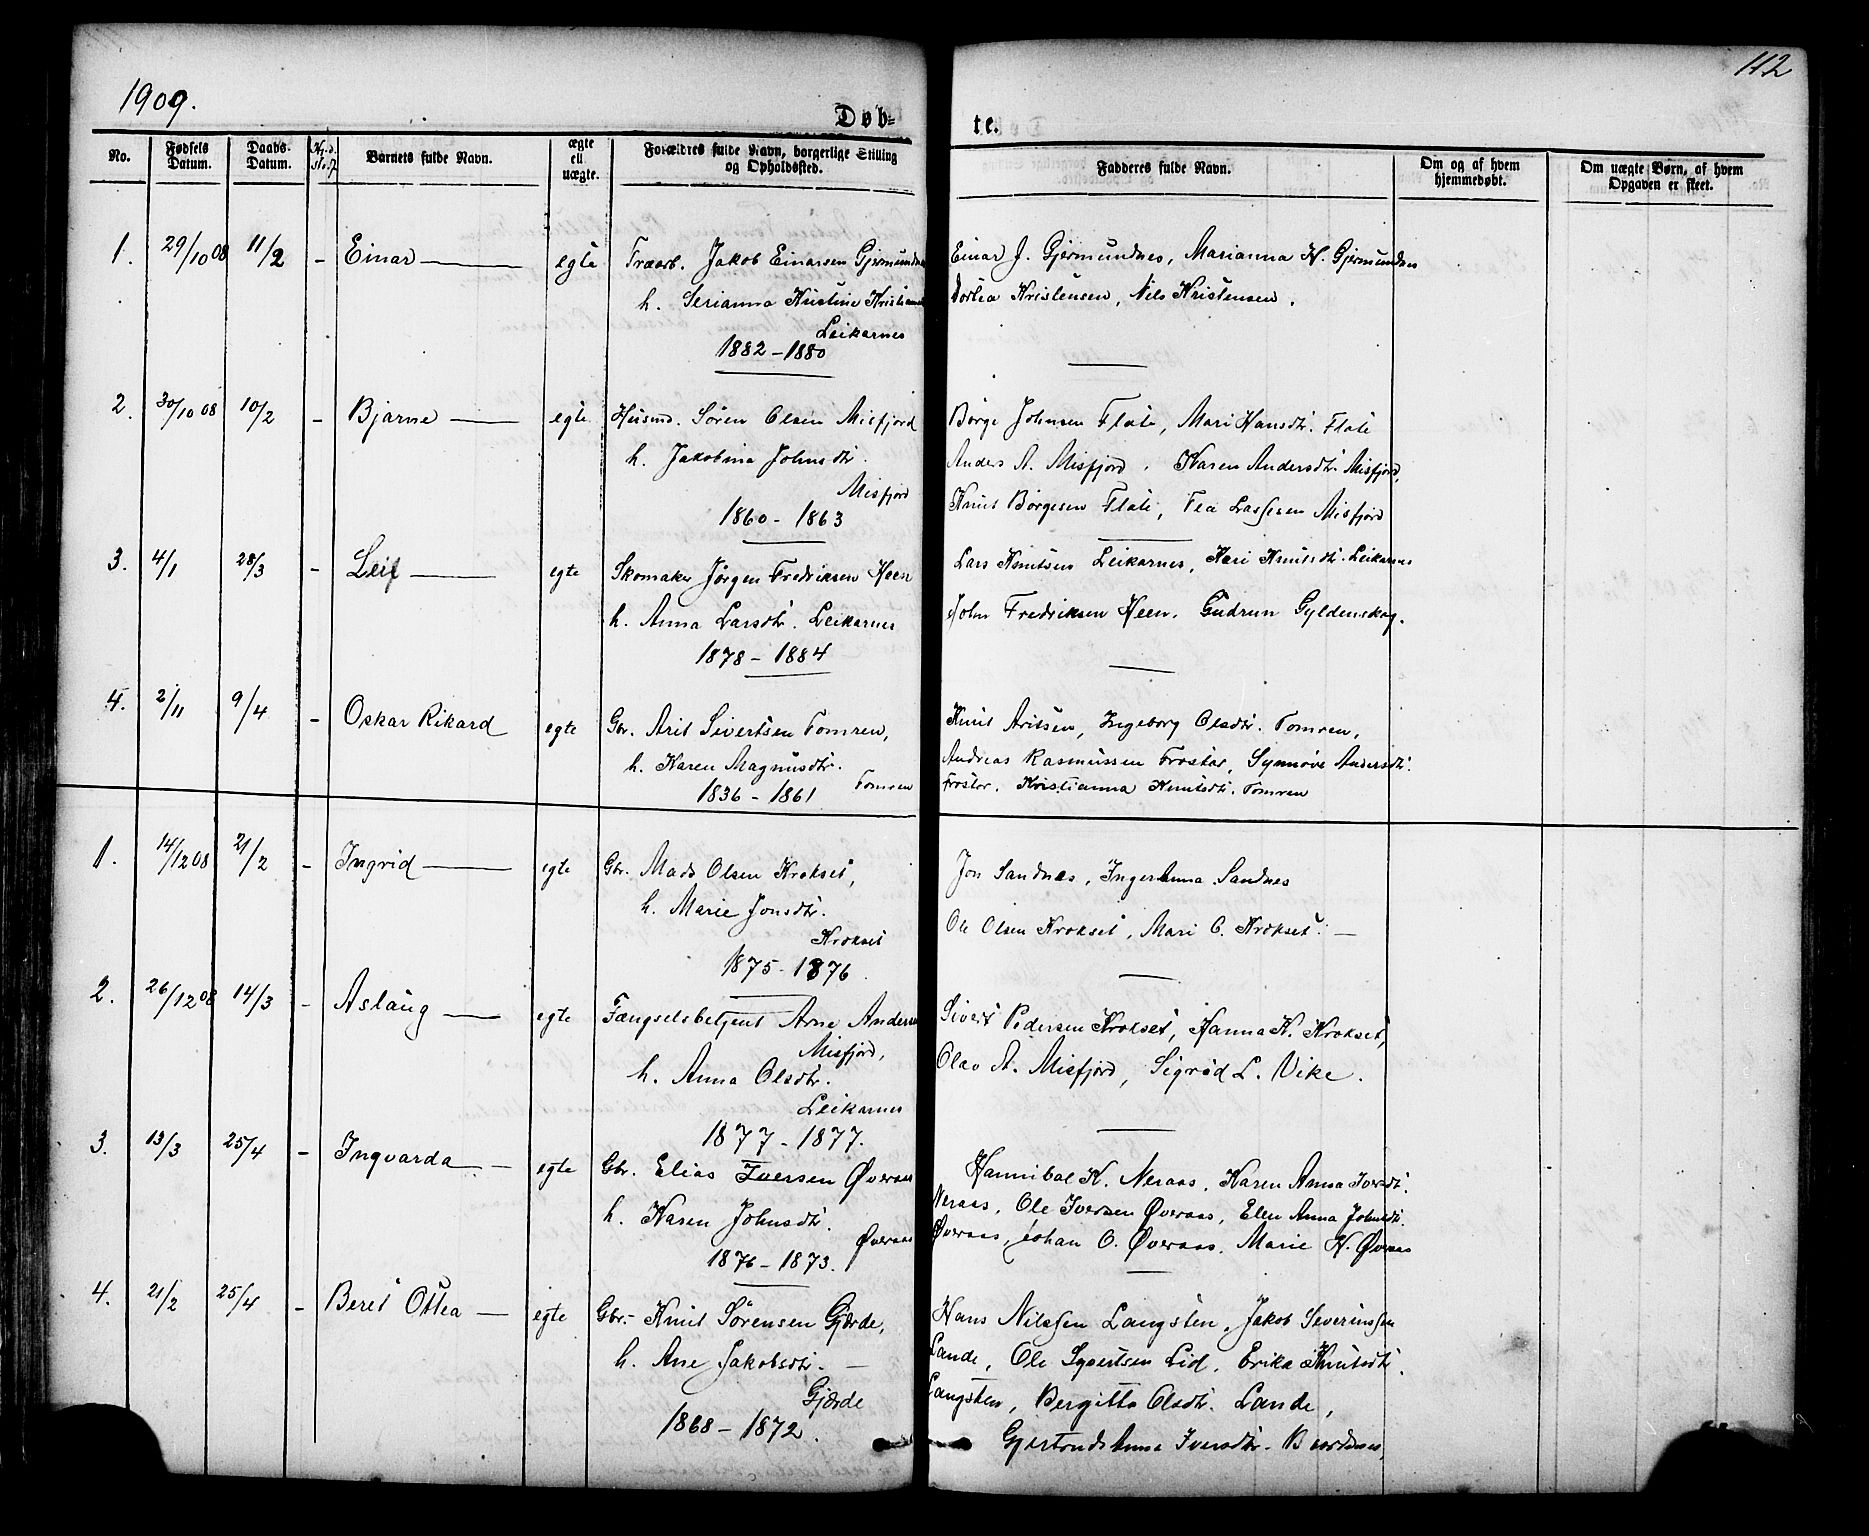 112
1909.
Døb-
te.
No.
Fødsels Datum.
Daabs-Datum.
Barnets fulde Navn.
ægte ell. uægte.
Forældres fulde Navn, borgerlige Stilling og Opholdssted.
Fadderes fulde Navn.
Om og af hvem hjemmedøbt.
Om uægte Børn, af hvem Opgaven er skeet.
1. 29/10 08 11/2 - Einar egte Træarb. Jakob Einarsen Gjermundnes
h. Serianna Kristine Kristians
Leikarnes
1882 - 1880
Einar J. Gjermundnes, Marianna H. Gjermundnes
Dortea Kristensen, Nils Kristensen.
2. 30/10 08 10/2 - Bjarne egte Husmd. Sören Olsen Misfjord
h. Jakobina Johnsdtr.
Misfjord
1860 - 1863
Börge Johnsen Flate, Mari Hansdtr. Flate
Anders A. Misfjord, Karen Andersdtr. Misfjord,
Knut Börgesen Flate, Fea Lassesen Misfjord
3. 4/1 28/3 - Leif egte Skomaker Jörgen Fredriksen Heen
h. Anna Larsdtr. Leikarnes
1878 - 1884
Lars Knutsen Leikarnes, Kari Knutsdtr. Leikarnes
John Fredriksen Heen. Gudrun Gyldenskog.
4. 2/11 9/4 - Oskar Rikard egte Gbr. Arit Sivertsen Tomren,
h. Karen Magnusdtr.
Tomren
1836 - 1861
Knut Aritsen, Ingeborg Olsdtr. Tomren,
Andreas Rasmussen Frostar, Synnøve Andersdtr.
Frostar. Kristianna Knutsdtr. Tomren
1. 14/12 08 21/2 - Ingrid egte Gbr. Mads Olsen Krokset,
h. Marie Jonsdtr.
Krokset
1875 - 1876
Jon Sandnes, Inger Anna Sandnes
Ole Olsen Krokset, Mari O. Krokset.
2. 26/12 08 14/3 - Aslaug egte Fængselsbetjent Arne Anders
Misfjord,
h. Anna Olsdtr.
Leikarnes
1877 - 1877.
Sivert Pedersen Krokset, Hanna K. Krokset,
Olav A. Misfjord, Sigrid L. Vike.
3. 13/3 25/4 - Ingvarda egte Gbr. Elias Iversen Øveraas
h. Karen Johnsdtr.
Øveraas
1876 - 1873.
Hannibal K. Neraas, Karen Anna Iversdtr.
Neraas, Ole Iversen Øveraas, Elen Anna Johnsdtr.
Øveraas, Johan O. Øveraas. Marie H. Øveraas
4. 21/2 25/4 - Beret Ottea egte Gbr. Knut Sørensen Gjærde,
h. Ane Jakobsdtr.
Gjærde
1868 - 1872.
Hans Nilssen Langsten, Jakob Severinssen
Lande, Ole Syvertsen Lid, Erika Knutsdtr.
Langsten, Bergitta Olsdtr. Lande,
Gjertrud Anna Iversdtr.